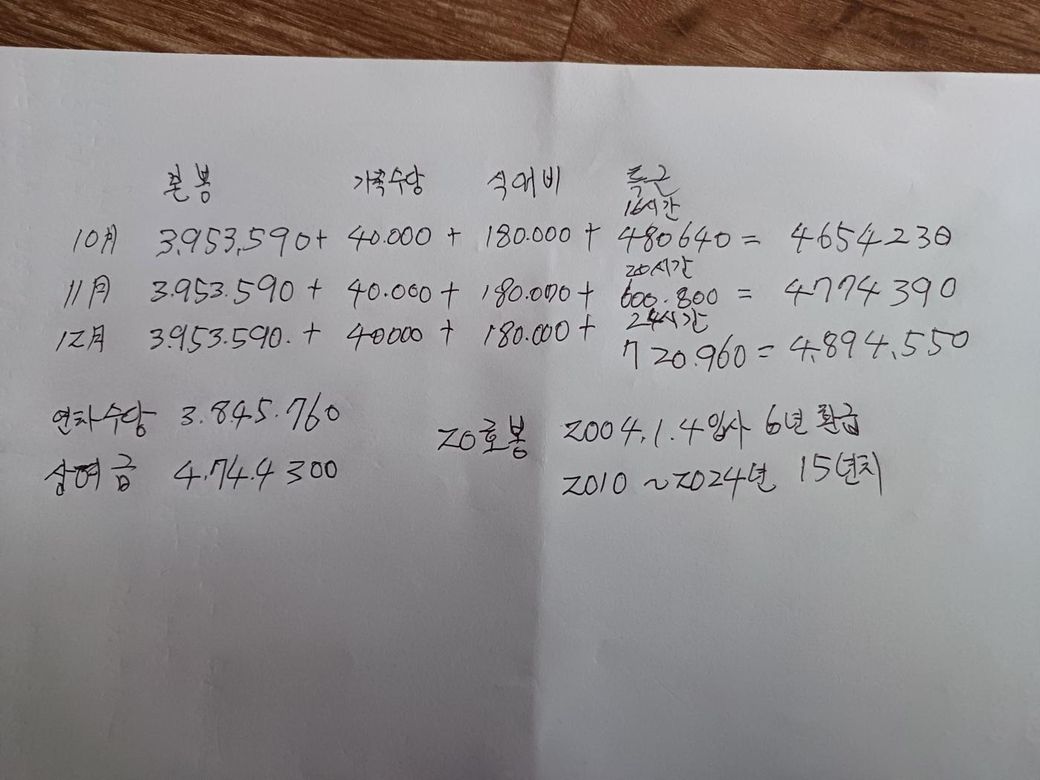 본봉 가족수당 식대비 특근
16시간
10月 3,953,590+ 40.000 + 180.000 + 480640 = 4654230
20시간
11月 3.953.590 + 40.000 + 180.000 + 600.800 = 4774390
24시간
12月 3.953.590. + 40000 + 180.000 + 720.960 = 4,894,550
연차수당 3.845.760
20호봉 2004.1.4입사 6년 환급
상여급 4.74.4300
2010 ~2024년 15년치